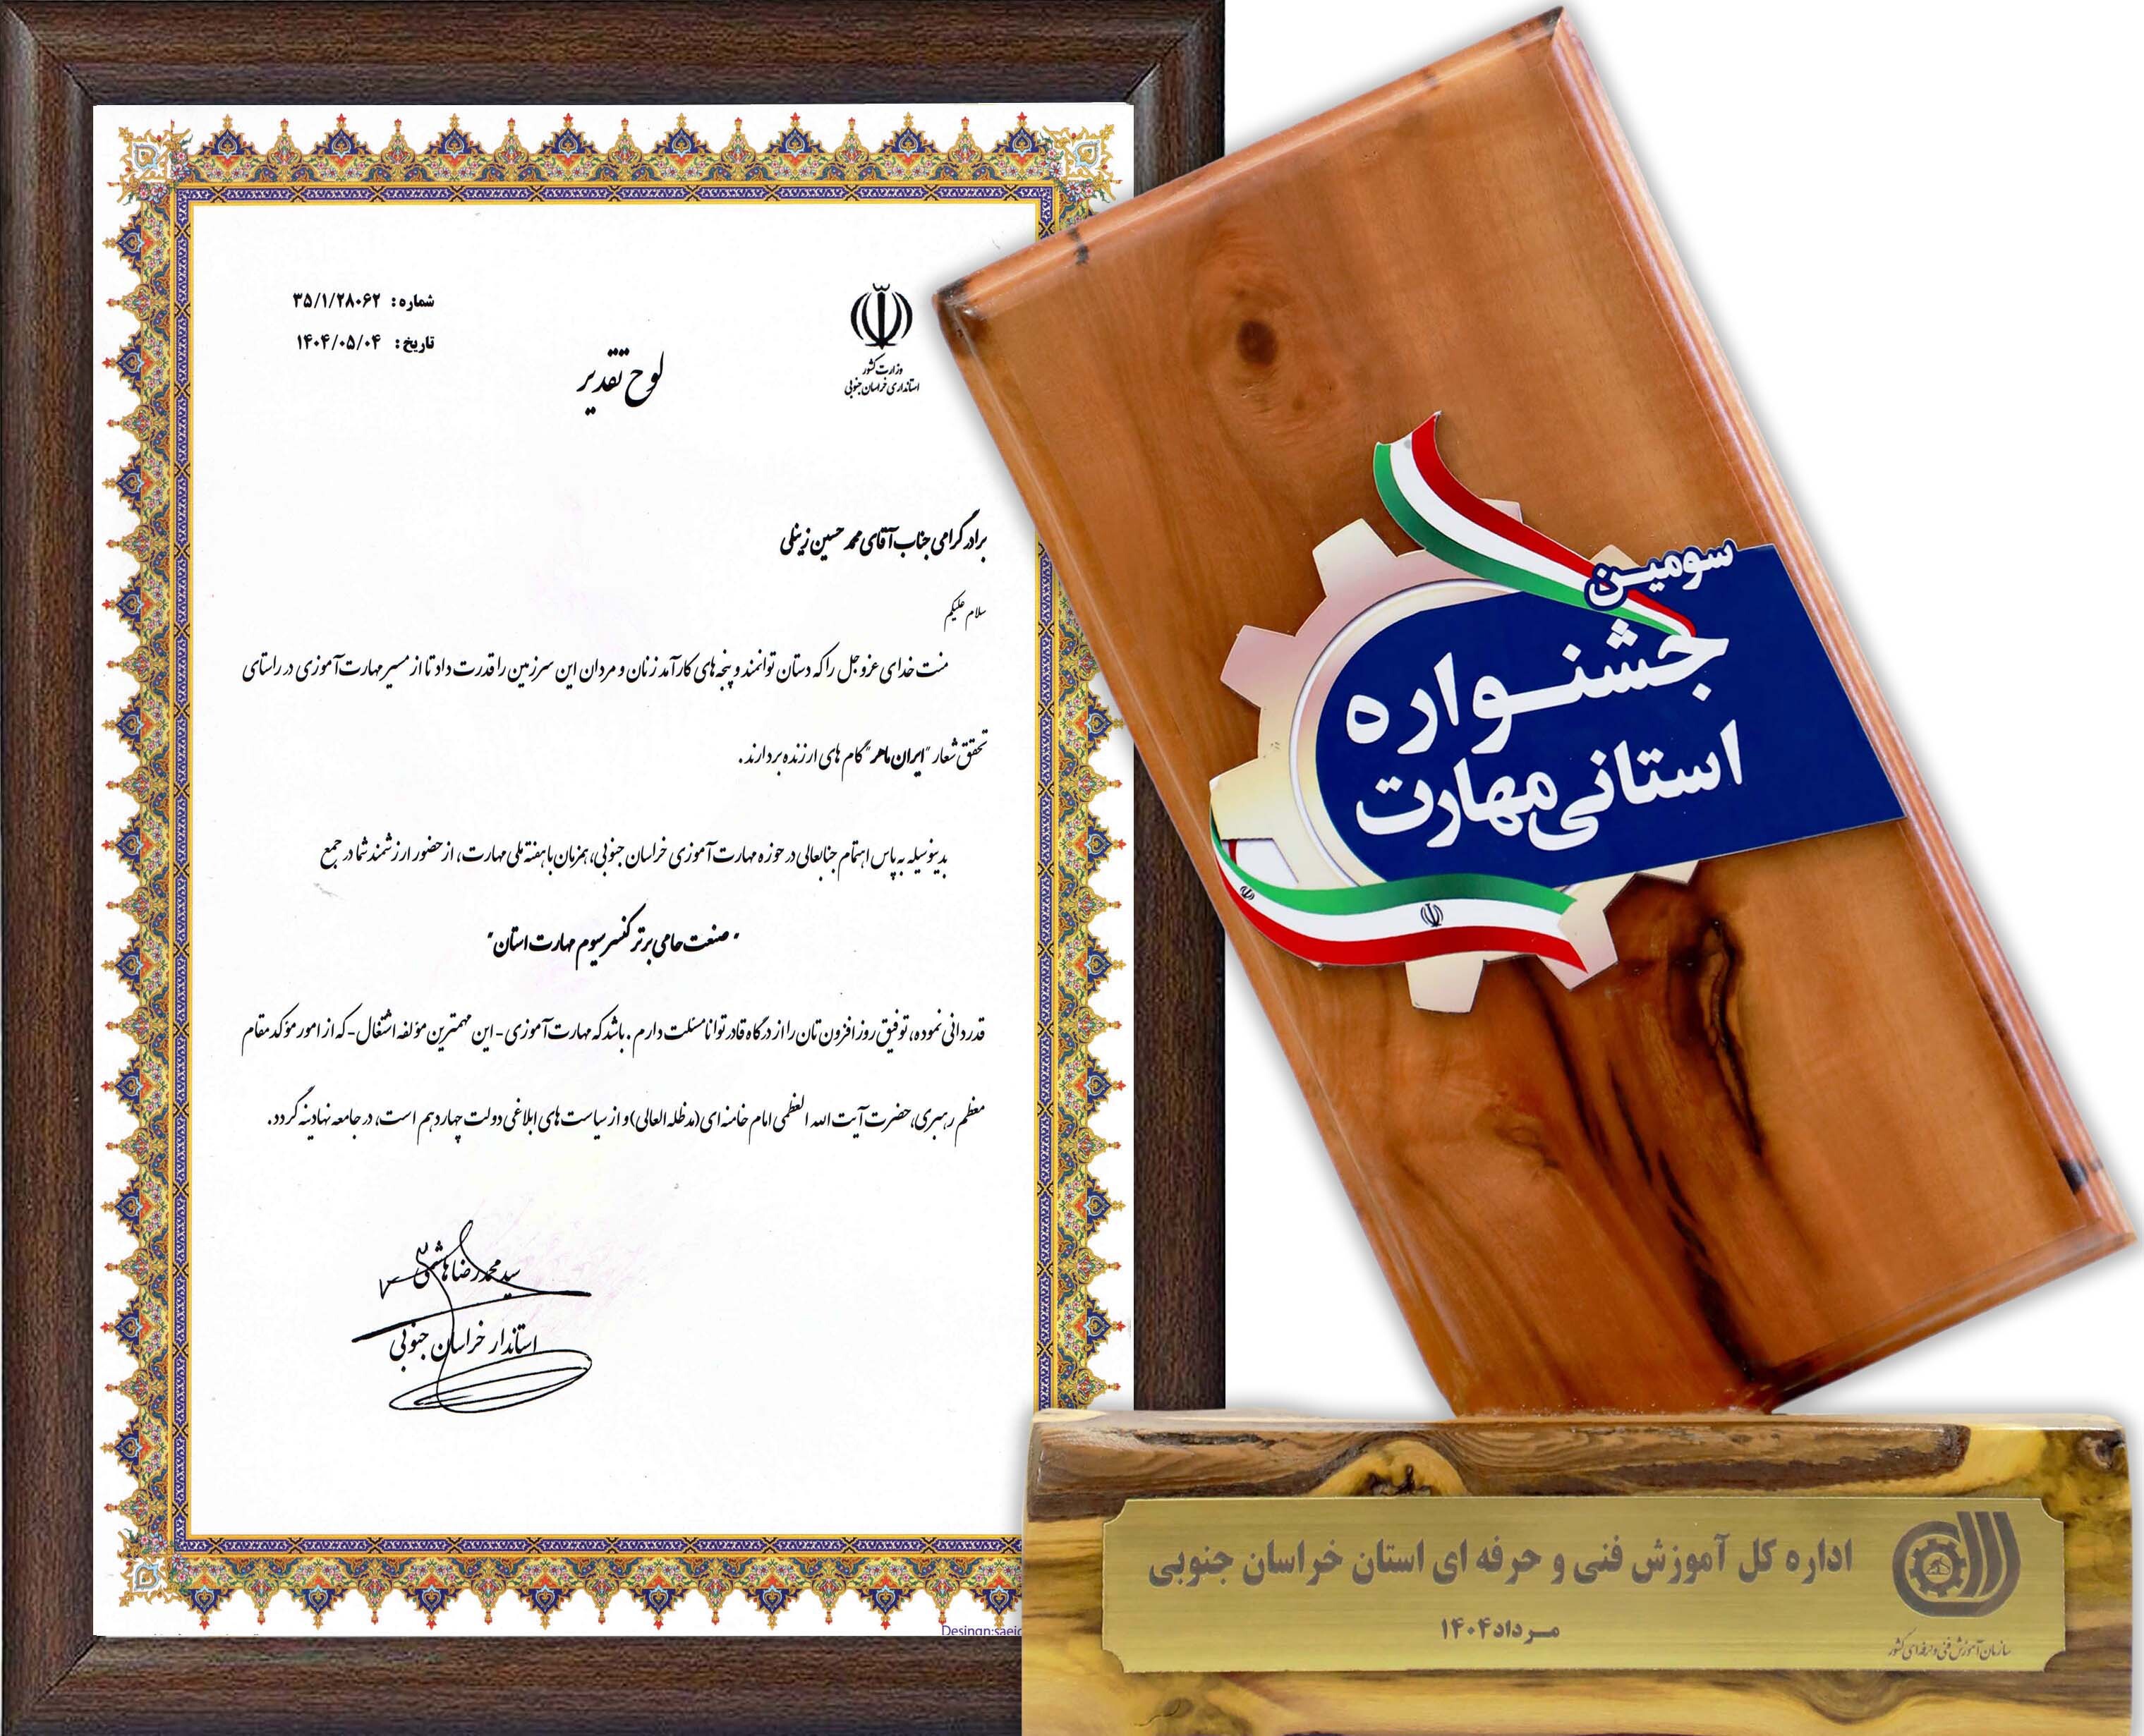 شماره: ۳۵/۱/۲۸۰۶۲
تاریخ: ۱۴۰۴/۰۵/۰۴
وزارت کشور
استانداری خراسان جنوبی
لوح تقدیر
برادر گرامی جناب آقای محمد حسین زینلی
سلام علیکم
منت خدای عزوجل را که دستان توانمند و پنجه های کارآمد زنان و مردان این سرزمین را قدرت داد تا از مسیر مهارت آموزی در راستای
تحقق شعار "ایران ماهر" گام های ارزنده بردارند.
بدینوسیله به پاس اهتمام جنابعالی در حوزه مهارت آموزی خراسان جنوبی، همزمان با هفته ملی مهارت، از حضور ارزشمند شما در جمع
"صنعت حامی برتر کنسرسیوم مهارت استان"
قدردانی نموده، توفیق روز افزون تان را از درگاه قادر توانا مسئلت دارم. باشد که مهارت آموزی - این مهمترین مؤلفه اشتغال - که از امور مؤکد مقام
معظم رهبری، حضرت آیت الله العظمی امام خامنه ای (مدظله العالی) و از سیاست های ابلاغی دولت چهاردهم است، در جامعه نهادینه گردد.
سید محمدرضا هاشمی
استاندار خراسان جنوبی
Desingn:saeic
سومین
جشنواره
استانی مهارت
اداره کل آموزش فنی و حرفه ای استان خراسان جنوبی
مرداد ۱۴۰۴
سازمان آموزش فنی و حرفه ای کشور